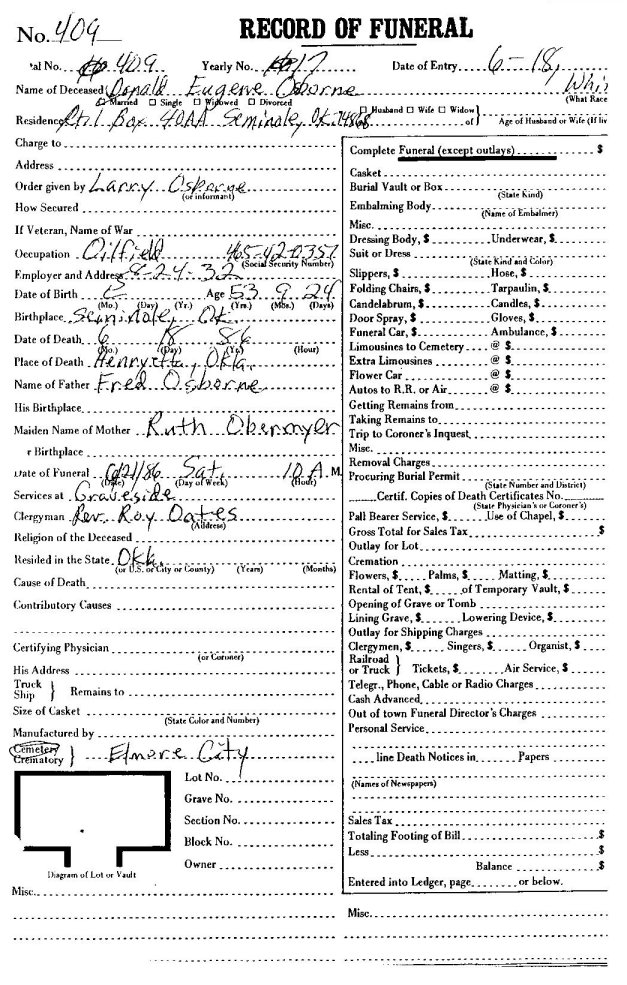 No. 409 RECORD OF FUNERAL
'al No. 409 Yearly No. 17 Date of Entry 6-18,
Name of Deceased Donald Eugene Osborne Whi
☐ Married ☐ Single ☐ Widowed ☐ Divorced (What Race
Residence Rt. 1 Box 40AA Seminole, Ok. 74868 ☐ Husband ☐ Wife ☐ Widow } of } Age of Husband or Wife (If liv
Charge to
Address
Order given by Larry Osborne
(or informant)
How Secured
If Veteran, Name of War
Occupation Oilfield 465-42-0357
(Social Security Number)
Employer and Address 8-24-32
Date of Birth Age 53 9 24
(Mo.) (Day) (Yr.) (Yrs.) (Mos.) (Days)
Birthplace Seminole, Ok.
Date of Death 6 18 86
(Mo.) (Day) (Yr.) (Hour)
Place of Death Henryetta, Okla.
Name of Father Fred Osborne
His Birthplace
Maiden Name of Mother Ruth Obermyer
r Birthplace
Date of Funeral 6/21/86 Sat. 10 A. M.
(Date) (Day of Week) (Hour)
Services at Graveside
Clergyman Rev. Roy Oates
(Address)
Religion of the Deceased
Resided in the State Okla.
(or U.S. or City or County) (Years) (Months)
Cause of Death
Contributory Causes
Certifying Physician
(or Coroner)
His Address
Truck
Ship } Remains to
Size of Casket
(State Color and Number)
Manufactured by
Cemetery
Crematory } Elmore City
Lot No.
Grave No.
Section No.
Block No.
Owner
Diagram of Lot or Vault
Misc.
Complete Funeral (except outlays) $
Casket
Burial Vault or Box
(State Kind)
Embalming Body
(Name of Embalmer)
Misc.
Dressing Body, $ Underwear, $
Suit or Dress
(State Kind and Color)
Slippers, $ Hose, $
Folding Chairs, $ Tarpaulin, $
Candelabrum, $ Candles, $
Door Spray, $ Gloves, $
Funeral Car, $ Ambulance, $
Limousines to Cemetery @ $
Extra Limousines @ $
Flower Car @ $
Autos to R.R. or Air @ $
Getting Remains from
Taking Remains to
Trip to Coroner's Inquest
Misc.
Removal Charges
Procuring Burial Permit
(State Number and District)
Certif. Copies of Death Certificates No.
(State Physician's or Coroner's)
Pall Bearer Service, $ Use of Chapel, $
Gross Total for Sales Tax $
Outlay for Lot
Cremation
Flowers, $ Palms, $ Matting, $
Rental of Tent, $ of Temporary Vault, $
Opening of Grave or Tomb
Lining Grave, $ Lowering Device, $
Outlay for Shipping Charges
Clergymen, $ Singers, $ Organist, $
Railroad
or Truck } Tickets, $ Air Service, $
Telegr., Phone, Cable or Radio Charges
Cash Advanced
Out of town Funeral Director's Charges
Personal Service
line Death Notices in Papers
(Names of Newspapers)
Sales Tax
Totaling Footing of Bill $
Less $
Balance $
Entered into Ledger, page or below.
Misc.